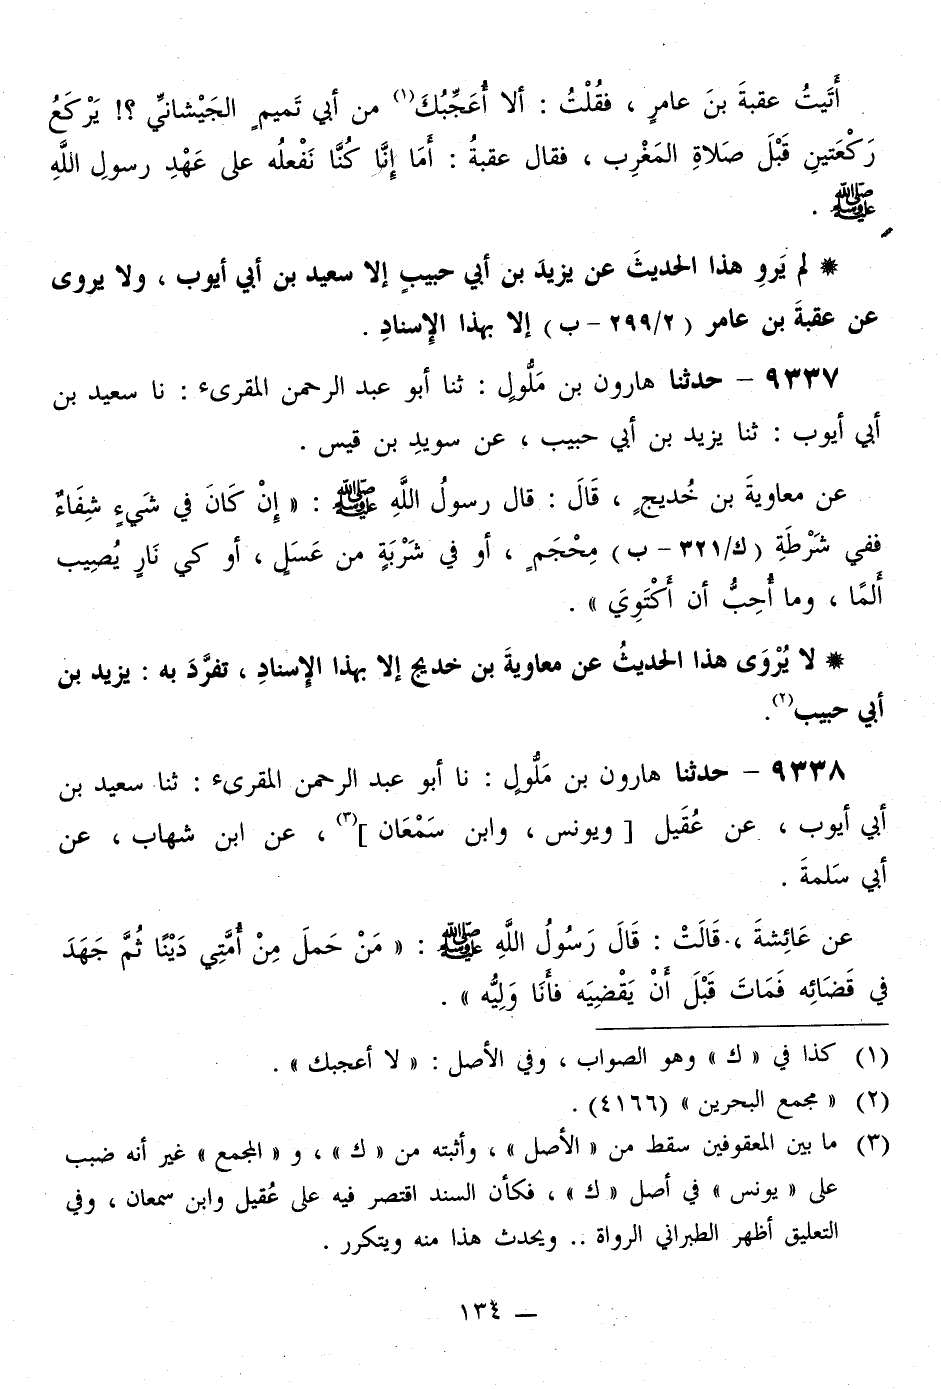 أَتَيتُ عقبةَ بنَ عامرٍ ، فقُلْتُ : ألا أُعَجِّبُكَ(١) من أبي تَميمٍ الجَيْشانيِّ ؟! يَرْكَعُ
رَكْعَتينِ قَبْلَ صَلاةِ المَغْرِب ، فقال عقبةُ : أَمَا إنَّا كُنَّا نَفْعلُه على عَهْدِ رسولِ اللَّهِ
ﷺ .
* لم يَروِ هذا الحديثَ عن يزيدَ بن أبي حبيبٍ إلا سعيد بن أبي أيوب ، ولا يروى
عن عقبةَ بن عامر ( ٢٩٩/٢ - ب ) إلا بهذا الإِسنادِ .
٩٣٣٧ - حدثنا هارون بن مَلُّولٍ : ثنا أبو عبد الرحمن المقرىء : نا سعيد بن
أبي أيوب : ثنا يزيد بن أبي حبيب ، عن سويدِ بن قيس .
عن معاويةَ بن خُديجٍ ، قَالَ : قال رسولُ اللَّهِ ﷺ : « إِنْ كَانَ في شَيءٍ شِفَاءٌ
ففي شَرْطَةِ ( ك/٣٢١ - ب ) مِحْجَمٍ ، أو في شَرْبَةٍ من عَسَلٍ ، أو كي نَارٍ يُصِيب
أَلمًا ، وما أُحِبُّ أن أَكْتَوِيَ » .
* لا يُرْوَى هذا الحديثُ عن معاويةَ بن خديج إلا بهذا الإِسنادِ ، تفرَّدَ به : يزيد بن
أبي حبيب(٢).
٩٣٣٨ - حدثنا هارون بن مَلُّولٍ : نا أبو عبد الرحمن المقرىء : ثنا سعيد بن
أبي أيوب ، عن عُقَيل [ ويونس ، وابن سَمْعَان ](٣) ، عن ابن شهاب ، عن
أبي سَلمةَ .
عن عَائِشةَ ، قَالَتْ : قَالَ رَسُولُ اللَّهِ ﷺ : « مَنْ حَملَ مِنْ أُمَّتِي دَيْنًا ثُمَّ جَهَدَ
في قَضَائِه فَمَاتَ قَبْلَ أَنْ يَقْضِيَه فأَنَا وَلِيُّه » .
(١) كذا في « ك » وهو الصواب ، وفي الأصل : « لا أعجبك » .
(٢) « مجمع البحرين » (٤١٦٦) .
(٣) ما بين المعقوفين سقط من « الأصل » ، وأثبته من « ك » ، و « المجمع » غير أنه ضبب
على « يونس » في أصل « ك » ، فكأن السند اقتصر فيه على عُقيل وابن سمعان ، وفي
التعليق أظهر الطبراني الرواة .. ويحدث هذا منه ويتكرر .
— ١٣٤